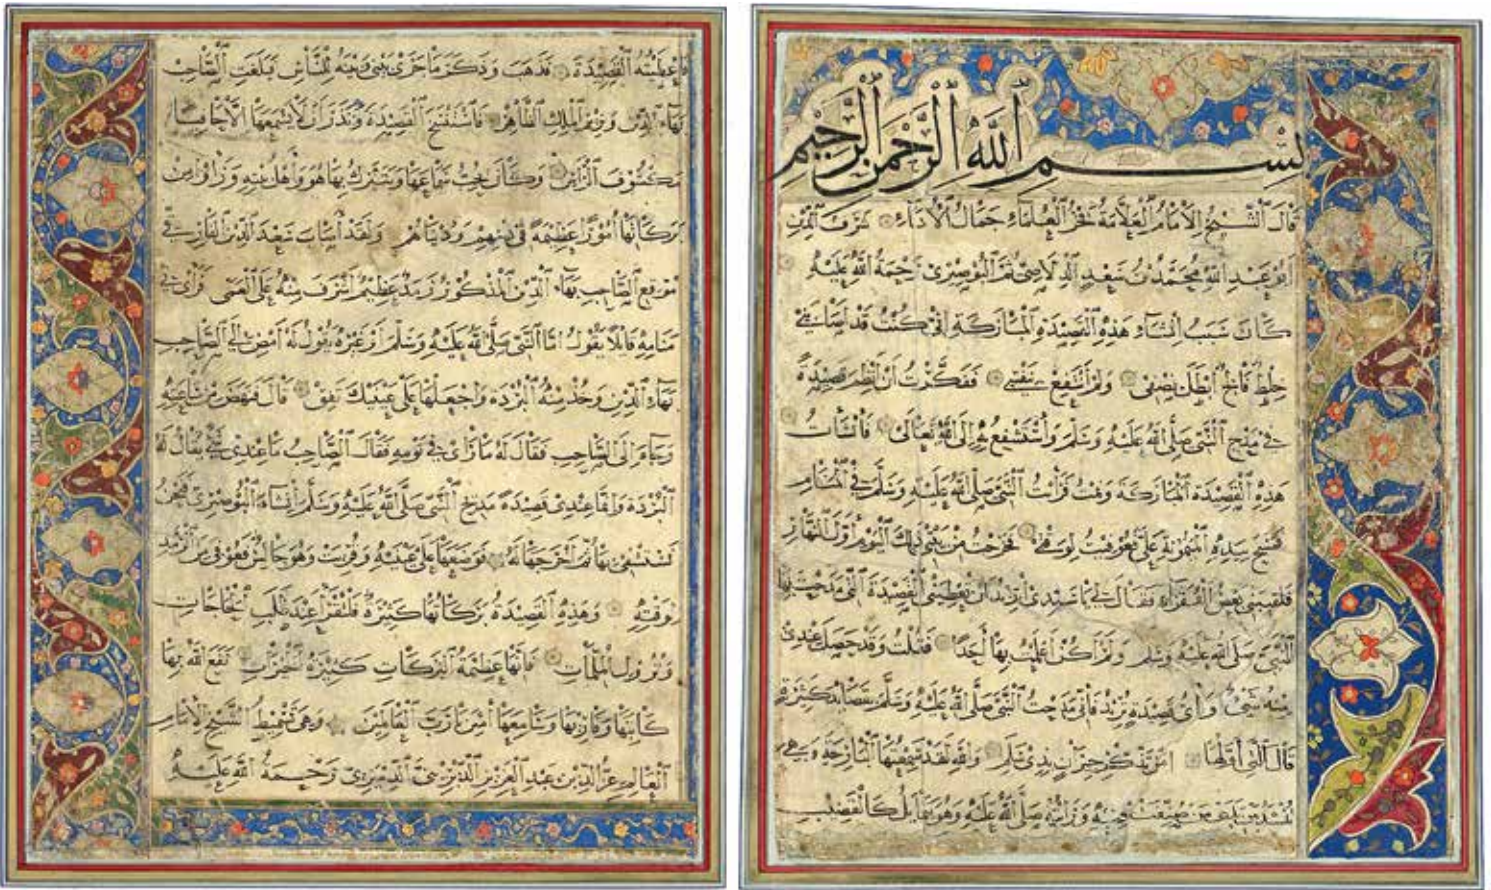 بسم الله الرحمن الرحيم
قال الشيخ الإمام العلامة فخر العلماء جمال الأدباء شرف الدين
أبو عبد الله محمد بن سعيد البوصيري رحمة الله عليه
كان سبب إنشاء هذه القصيدة المباركة أني كنت قد أصابني
خلط فالج أبطل نصفي ولم أنتفع بنفسي ففكرت أن أنظم قصيدة
في مديح النبي صلى الله عليه وسلم وأستشفع به إلى الله تعالى فأنشأت
هذه القصيدة المباركة ونمت فرأيت النبي صلى الله عليه وسلم في المنام
فمسح بيده الميمونة علي فعوفيت لوقتي فخرجت من بيتي ذلك اليوم أول النهار
فلقيني بعض الفقراء فقال لي يا سيدي أريد أن تعطيني القصيدة التي مدحت بها
النبي صلى الله عليه وسلم ولم أكن أعلمت بها أحدا فقلت وقد حصل عندي
منه شيء وأي قصيدة تريد فإني مدحت النبي صلى الله عليه وسلم بقصائد كثيرة
قال التي أولها أمن تذكر جيران بذي سلم والله لقد سمعتها البارحة وهي
تنشد بين يدي من صنفت فيه ورأيته صلى الله عليه وهو يتمايل كالقضيب
فأعطيته القصيدة فذهب وذكر ما جرى بيني وبينه للناس فبلغت الصاحب
بهاء الدين وزير الملك الظاهر فاستنسخ القصيدة ونذر أن لا يسمعها إلا حافيا
مكشوف الرأس وكان يحب سماعها ويتبرك بها هو وأهل بيته ورأوا من
بركاتها أمورا عظيمة في دينهم ودنياهم ولقد أصاب سعد الدين الفارقي
موقع الصاحب بهاء الدين المذكور رمد عظيم أشرف منه على العمى فرأى في
منامه قائلا يقول أنا النبي صلى الله عليه وسلم أو غيره يقول له امض إلى الصاحب
بهاء الدين وخذ منه البردة واجعلها على عينيك تفق قال فنهض من ساعته
وجاء إلى الصاحب فقال له ما رأى في نومه فقال الصاحب ما عندي شيء يقال له
البردة وإنما عندي قصيدة مديح النبي صلى الله عليه وسلم إنشاء البوصيري فنحن
نستشفي بها ثم أخرجها له فوضعها على عينيه وقرئت وهو جالس فعوفي من الرمد
لوقته وهذه القصيدة بركاتها كثيرة فلتقرأ عند طلب الحاجات
ونزول الملمات فإنها عظيمة البركات كثيرة الخيرات نفع الله بها
كاتبها وقارئها وسامعها آمين يا رب العالمين وهي تسميط الشيخ الإمام
العالم عز الدين بن عبد العزيز الديريني رحمة الله عليه